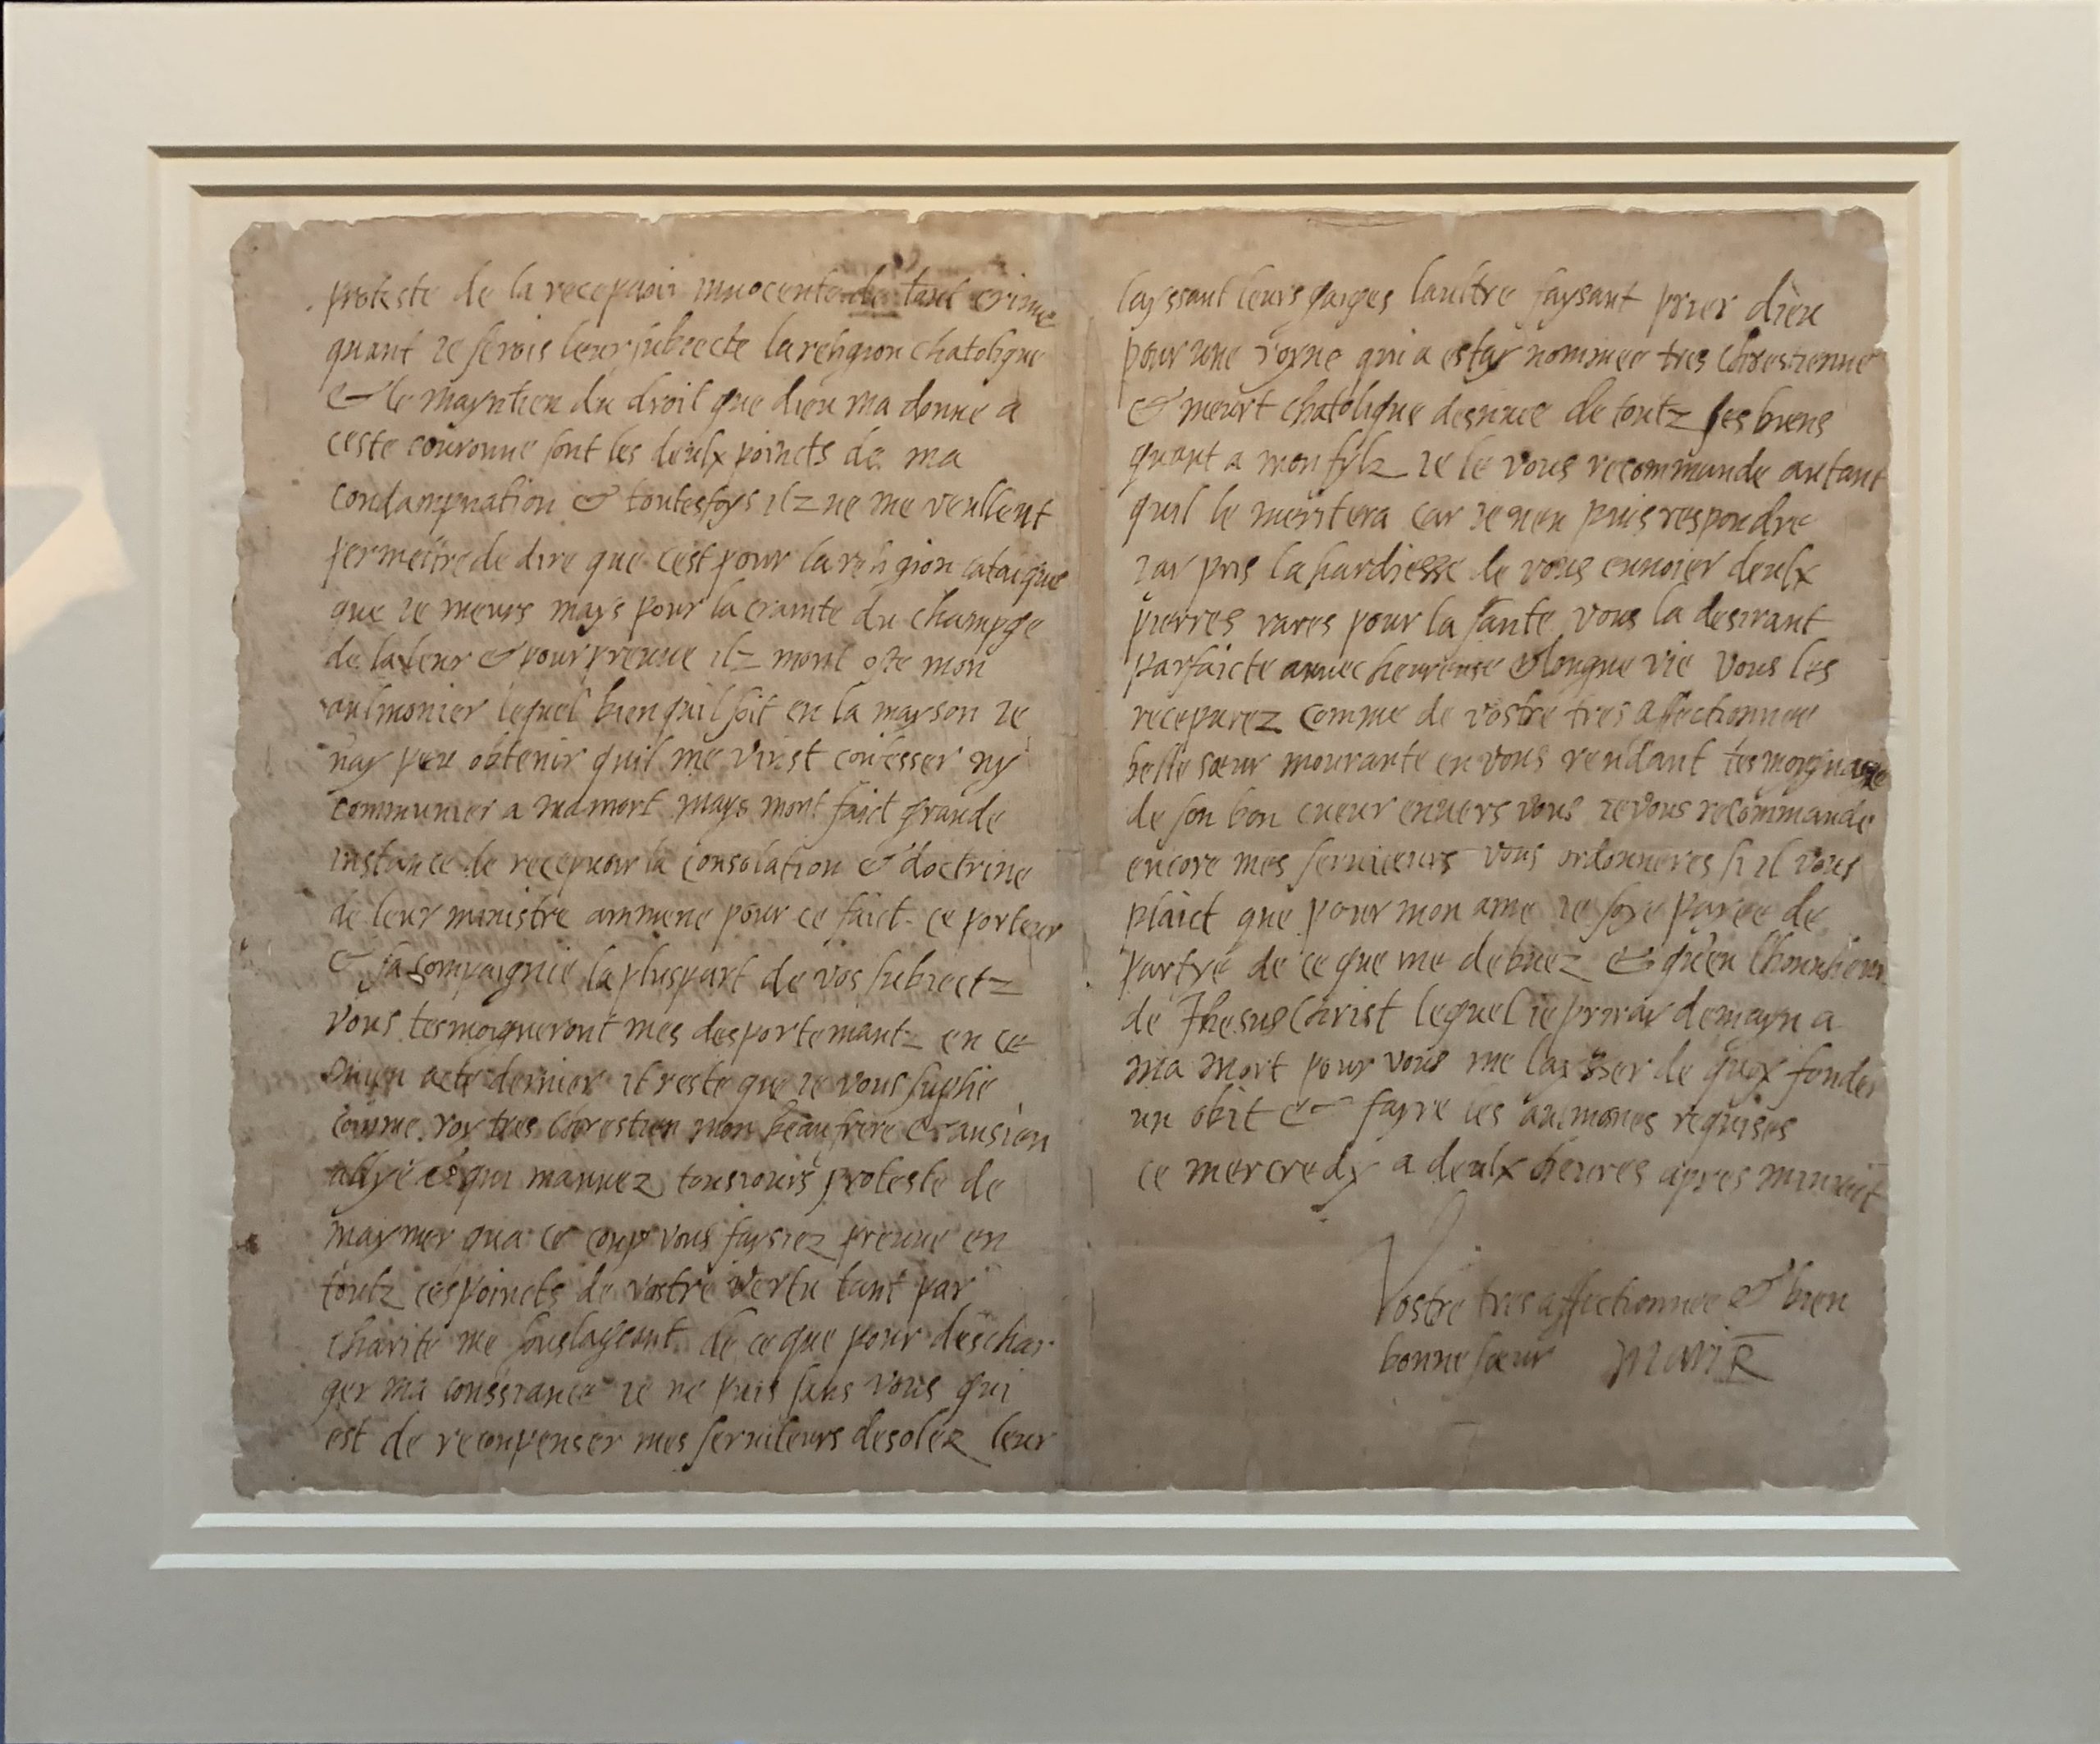 proteste de la recepvoir innocente de tout crime
quant ie serois leur subiecte la religion chatolique
& le mayntien du droit que dieu ma donne a
ceste couronne sont les deulx poincts de ma
condampnation & toutesfoys ilz ne me veullent
permettre de dire que cest pour la religion catolique
que ie meurs mays pour la crainte du champge
de la leur & pour preuve ilz mont oste mon
aulmonier lequel bien quil soit en la mayson ie
nay peu obtenir quil me vinst confesser ny
communier a ma mort mays mont faict grande
instance de recepvoir la consolation & doctrine
de leur ministre ammene pour ce faict ce porteur
& sa compaignie la pluspart de vos subiectz
vous tesmoigneront mes desportemantz en ce
mien acte dernier il reste que ie vous suplie
comme roy tres chrestien mon beau frere & ansien
allye & qui mavuez tousiours proteste de
maymer qua ce coup vous faysiez preuve en
toutz ces poincts de vostre vertu tant par
charite me souslageant de ce que pour deschar
ger ma conssiance ie ne puis sans vous qui
est de recompenser mes serviteurs desolez leur
layssant leurs gaiges laultre faysant prier dieu
pour une royne qui a estay nommee tres chrestienne
& meurt chatolique desnuee de toutz ses biens
quant a mon fylz ie le vous recommande autant
quil le meritera car ie nen puis respondre
iay pris la hardiesse de vous envoier deulx
pierres rares pour la sante vous la desirant
parfaicte avvec heureuse & longue vie vous les
recepvrez comme de vostre tres affectionnee
belle sœur mourante en vous rendant tesmoygnage
de son bon cueur envers vous ie vous recommande
encore mes serviteurs vous ordonneres si il vous
plaict que pour mon ame ie soye payee de
partye de ce que me debvez & quen lhonneur
de Jhesus Christ lequel ie priray demayn a
ma mort pour vous me laysser de quoy fonder
un obit & fayre les aulmones requises
ce mercredy a deulx heures apres minuict
Vostre tres affectionnee & bien
bonne sœur Mari R